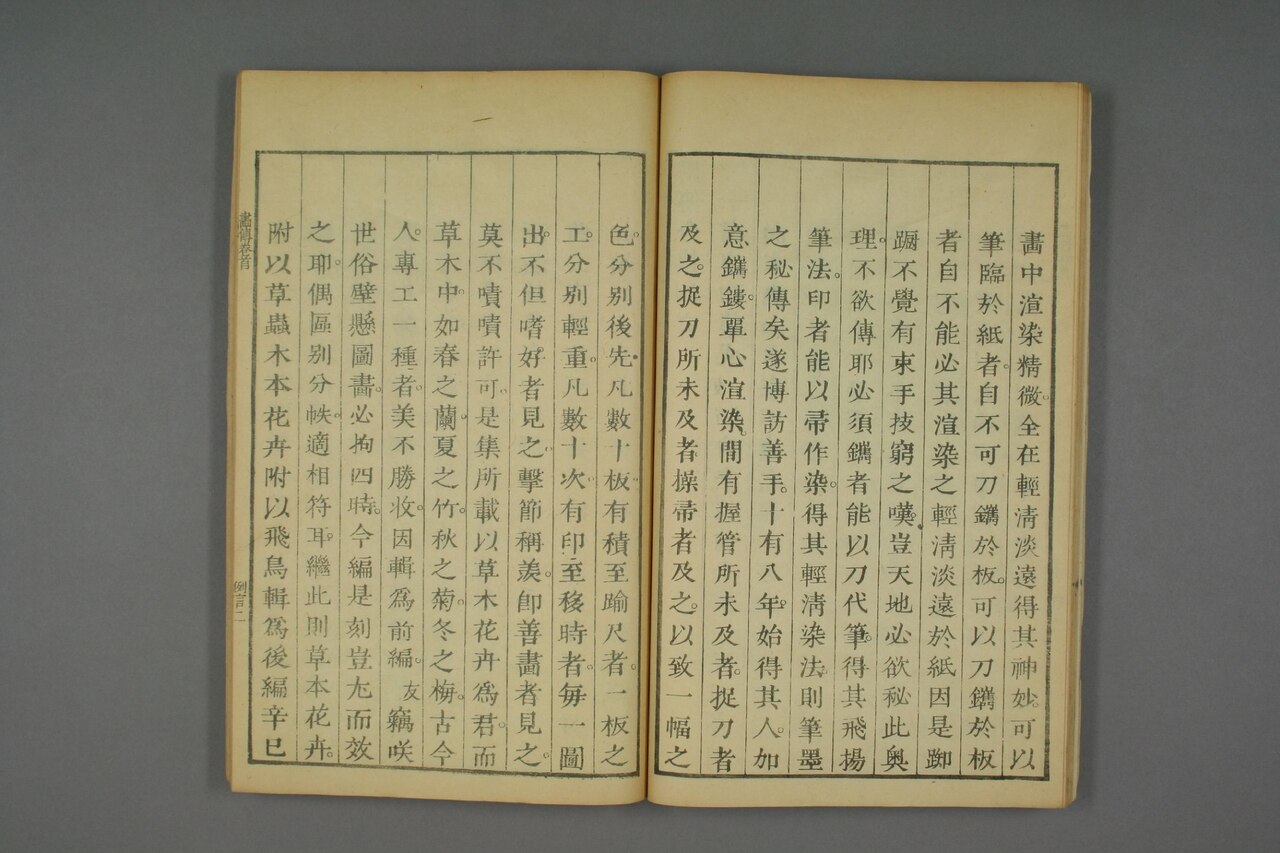 畫中渲染精微。全在輕清淡遠得其神妙。可以
筆臨於紙者。自不可刀鐫於板。可以刀鐫於板
者自不能必其渲染之輕清淡遠於紙因是踟
蹰不覺有束手技窮之嘆。豈天地必欲秘此奥
理。不欲傳耶必須鐫者能以刀代筆。得其飛揚
筆法。印者能以帚作染。得其輕清染法。則筆墨
之秘傳矣遂博訪善手。十有八年。始得其人。加
意鐫鏤。單心渲染。間有握管所未及者。捉刀者
及之。捉刀所未及者。操帚者及之。以致一幅之
色。分别後先。凡數十板。有積至踰尺者。一板之
工。分别輕重。凡數十次。有印至移時者。毎一圖
出。不但嗜好者見之。擊節稱羨。卽善畫者見之。
莫不嘖嘖許可。是集所載以草木花卉爲君。而
草木中。如春之蘭。夏之竹。秋之菊。冬之梅。古今
人。專工一種者。美不勝收。因輯爲前編。友竊咲
世俗壁懸圖畫。必拘四時。今編是刻豈尤而效
之。耶。偶區别分帙。適相符耳。繼此則草本花卉。
附以草蟲木本花卉附以飛鳥輯爲後編辛巳
畫傳卷首
例言二